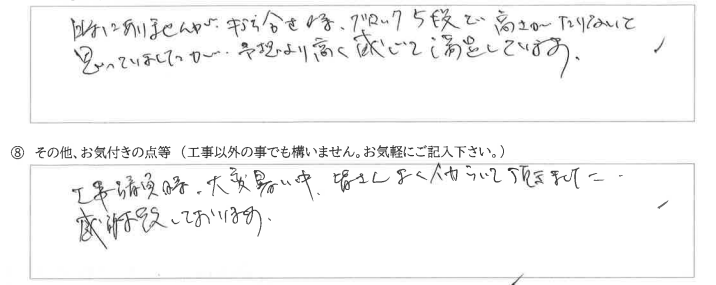 特にありませんが、打ち合せ時、ブロック5段で高さがたりないと
思っていましたが、予想より高く感じて満足しています。
⑧ その他、お気付きの点等 (工事以外の事でも構いません。お気軽にご記入下さい。)
工事 大変暑い中、皆さんよく して頂きました
感謝致しております。